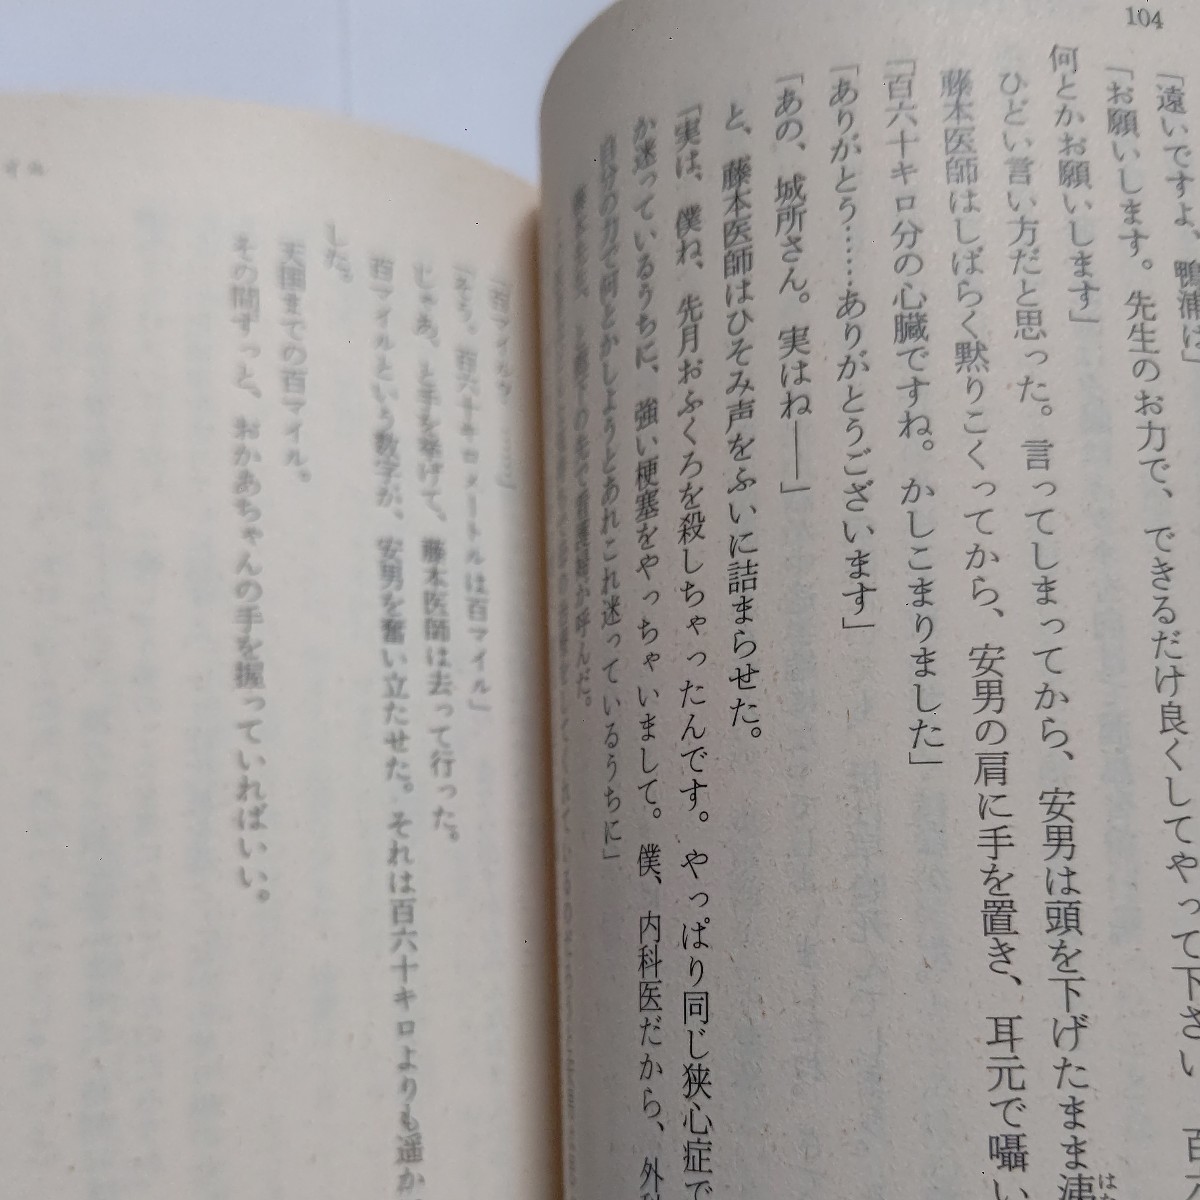 104
「遠いですよ、鴨浦は」
「お願いします。先生のお力で、できるだけ良くしてやって下さい
何とかお願いします」
ひどい言い方だと思った。言ってしまってから、安男は頭を下げたまま洟
はな
藤本医師はしばらく黙りこくってから、安男の肩に手を置き、耳元で囁い
「百六十キロ分の心臓ですね。かしこまりました」
「ありがとう……ありがとうございます」
「あの、城所さん。実はね――」
と、藤本医師はひそみ声をふいに詰まらせた。
「実は、僕ね、先月おふくろを殺しちゃったんです。やっぱり同じ狭心症で
か迷っているうちに、強い梗塞をやっちゃいまして。僕、内科医だから、外科
自分の力で何とかしようとあれこれ迷っているうちに」
「百マイル？……」
「そう。百六十キロメートルは百マイル」
じゃあ、と手を挙げて、藤本医師は去って行った。
百マイルという数字が、安男を奮い立たせた。それは百六十キロよりも遥か
した。
天国までの百マイル。
その間ずっと、おかあちゃんの手を握っていればいい。